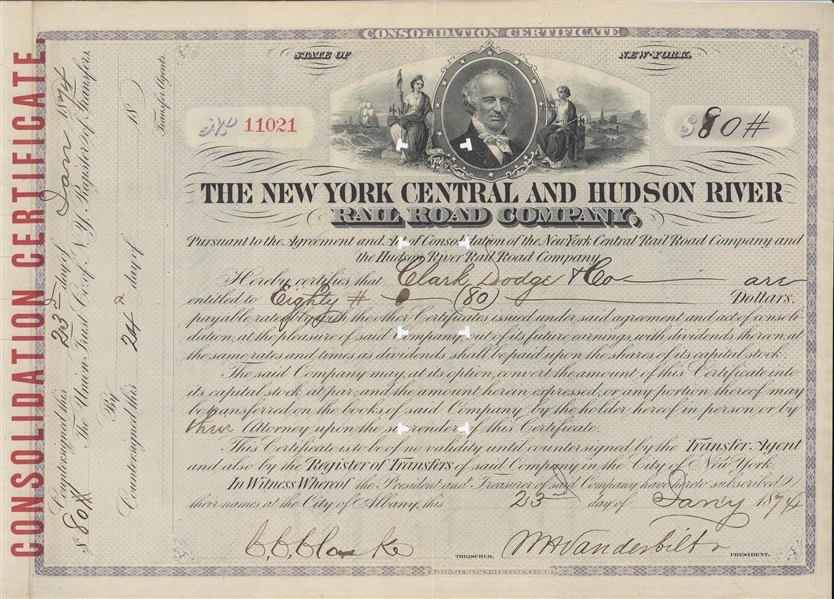 CONSOLIDATION CERTIFICATE
STATE OF NEW-YORK.
No 11021
$ 80 #
THE NEW YORK CENTRAL AND HUDSON RIVER
RAIL ROAD COMPANY,
Pursuant to the Agreement and Act of Consolidation of the New York Central Rail Road Company and
the Hudson River Rail Road Company
Hereby certifies that Clark Dodge & Co are
entitled to Eighty # (80) Dollars.
payable rateably with the other Certificates issued under said agreement and act of consoli-
dation, at the pleasure of said Company, out of its future earnings, with dividends thereon at
the same rates and times as dividends shall be paid upon the shares of its capital stock.
The said Company may, at its option, convert the amount of this Certificate into
its capital stock at par; and the amount herein expressed, or any portion thereof may
be transferred on the books of said Company by the holder hereof in person or by
their Attorney upon the surrender of this Certificate.
This Certificate is to be of no validity until countersigned by the Transfer Agent
and also by the Register of Transfers of said Company in the City of New York.
In Witness Whereof the President and Treasurer of said Company have hereto subscribed
their names at the City of Albany, this 23d day of Jany 1874
C.C. Clarke TREASURER. W H Vanderbilt PRESIDENT.
NATIONAL BANK NOTE CO. NEW YORK
CONSOLIDATION CERTIFICATE.
Countersigned this 23d day of Jan 1874
The Union Trust Co. of N.Y. Register of Transfers
By
Countersigned this 24th day of 18
Transfer Agents
$ 80 #